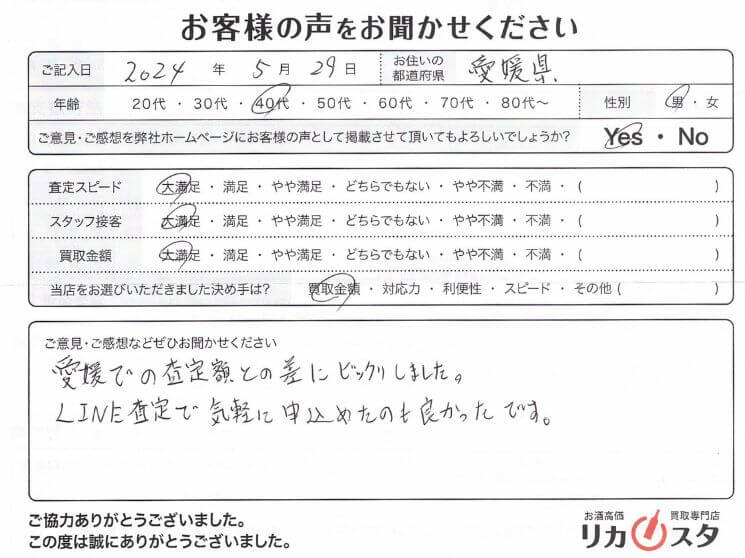 お客様の声をお聞かせください
ご記入日 2024 年 5 月 29 日 お住いの都道府県 愛媛県
年齢 20代 ・ 30代 ・ 40代 ・ 50代 ・ 60代 ・ 70代 ・ 80代〜 性別 男 ・ 女
ご意見・ご感想を弊社ホームページにお客様の声として掲載させて頂いてもよろしいでしょうか? Yes ・ No
査定スピード 大満足 ・ 満足 ・ やや満足 ・ どちらでもない ・ やや不満 ・ 不満 ・ ( )
スタッフ接客 大満足 ・ 満足 ・ やや満足 ・ どちらでもない ・ やや不満 ・ 不満 ・ ( )
買取金額 大満足 ・ 満足 ・ やや満足 ・ どちらでもない ・ やや不満 ・ 不満 ・ ( )
当店をお選びいただきました決め手は? 買取金額 ・ 対応力 ・ 利便性 ・ スピード ・ その他 ( )
ご意見・ご感想などぜひお聞かせください
愛媛での査定額との差にビックリしました。
LINE査定で気軽に申込めたのも良かったです。
ご協力ありがとうございました。
この度は誠にありがとうございました。
お酒高価 買取専門店
リカスタ